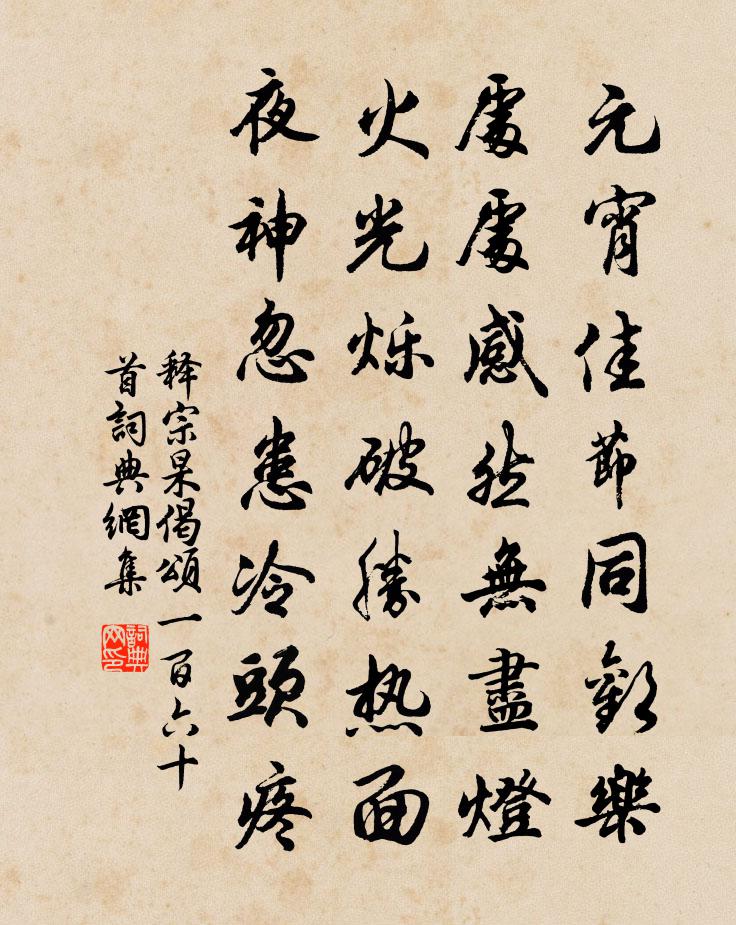 元宵佳節同歡樂
處處感然無盡燈
火光烁破勝热面
夜神忽患冷頭疼
释宗杲偈頌一百六十
首詞典網集
詞典
网印